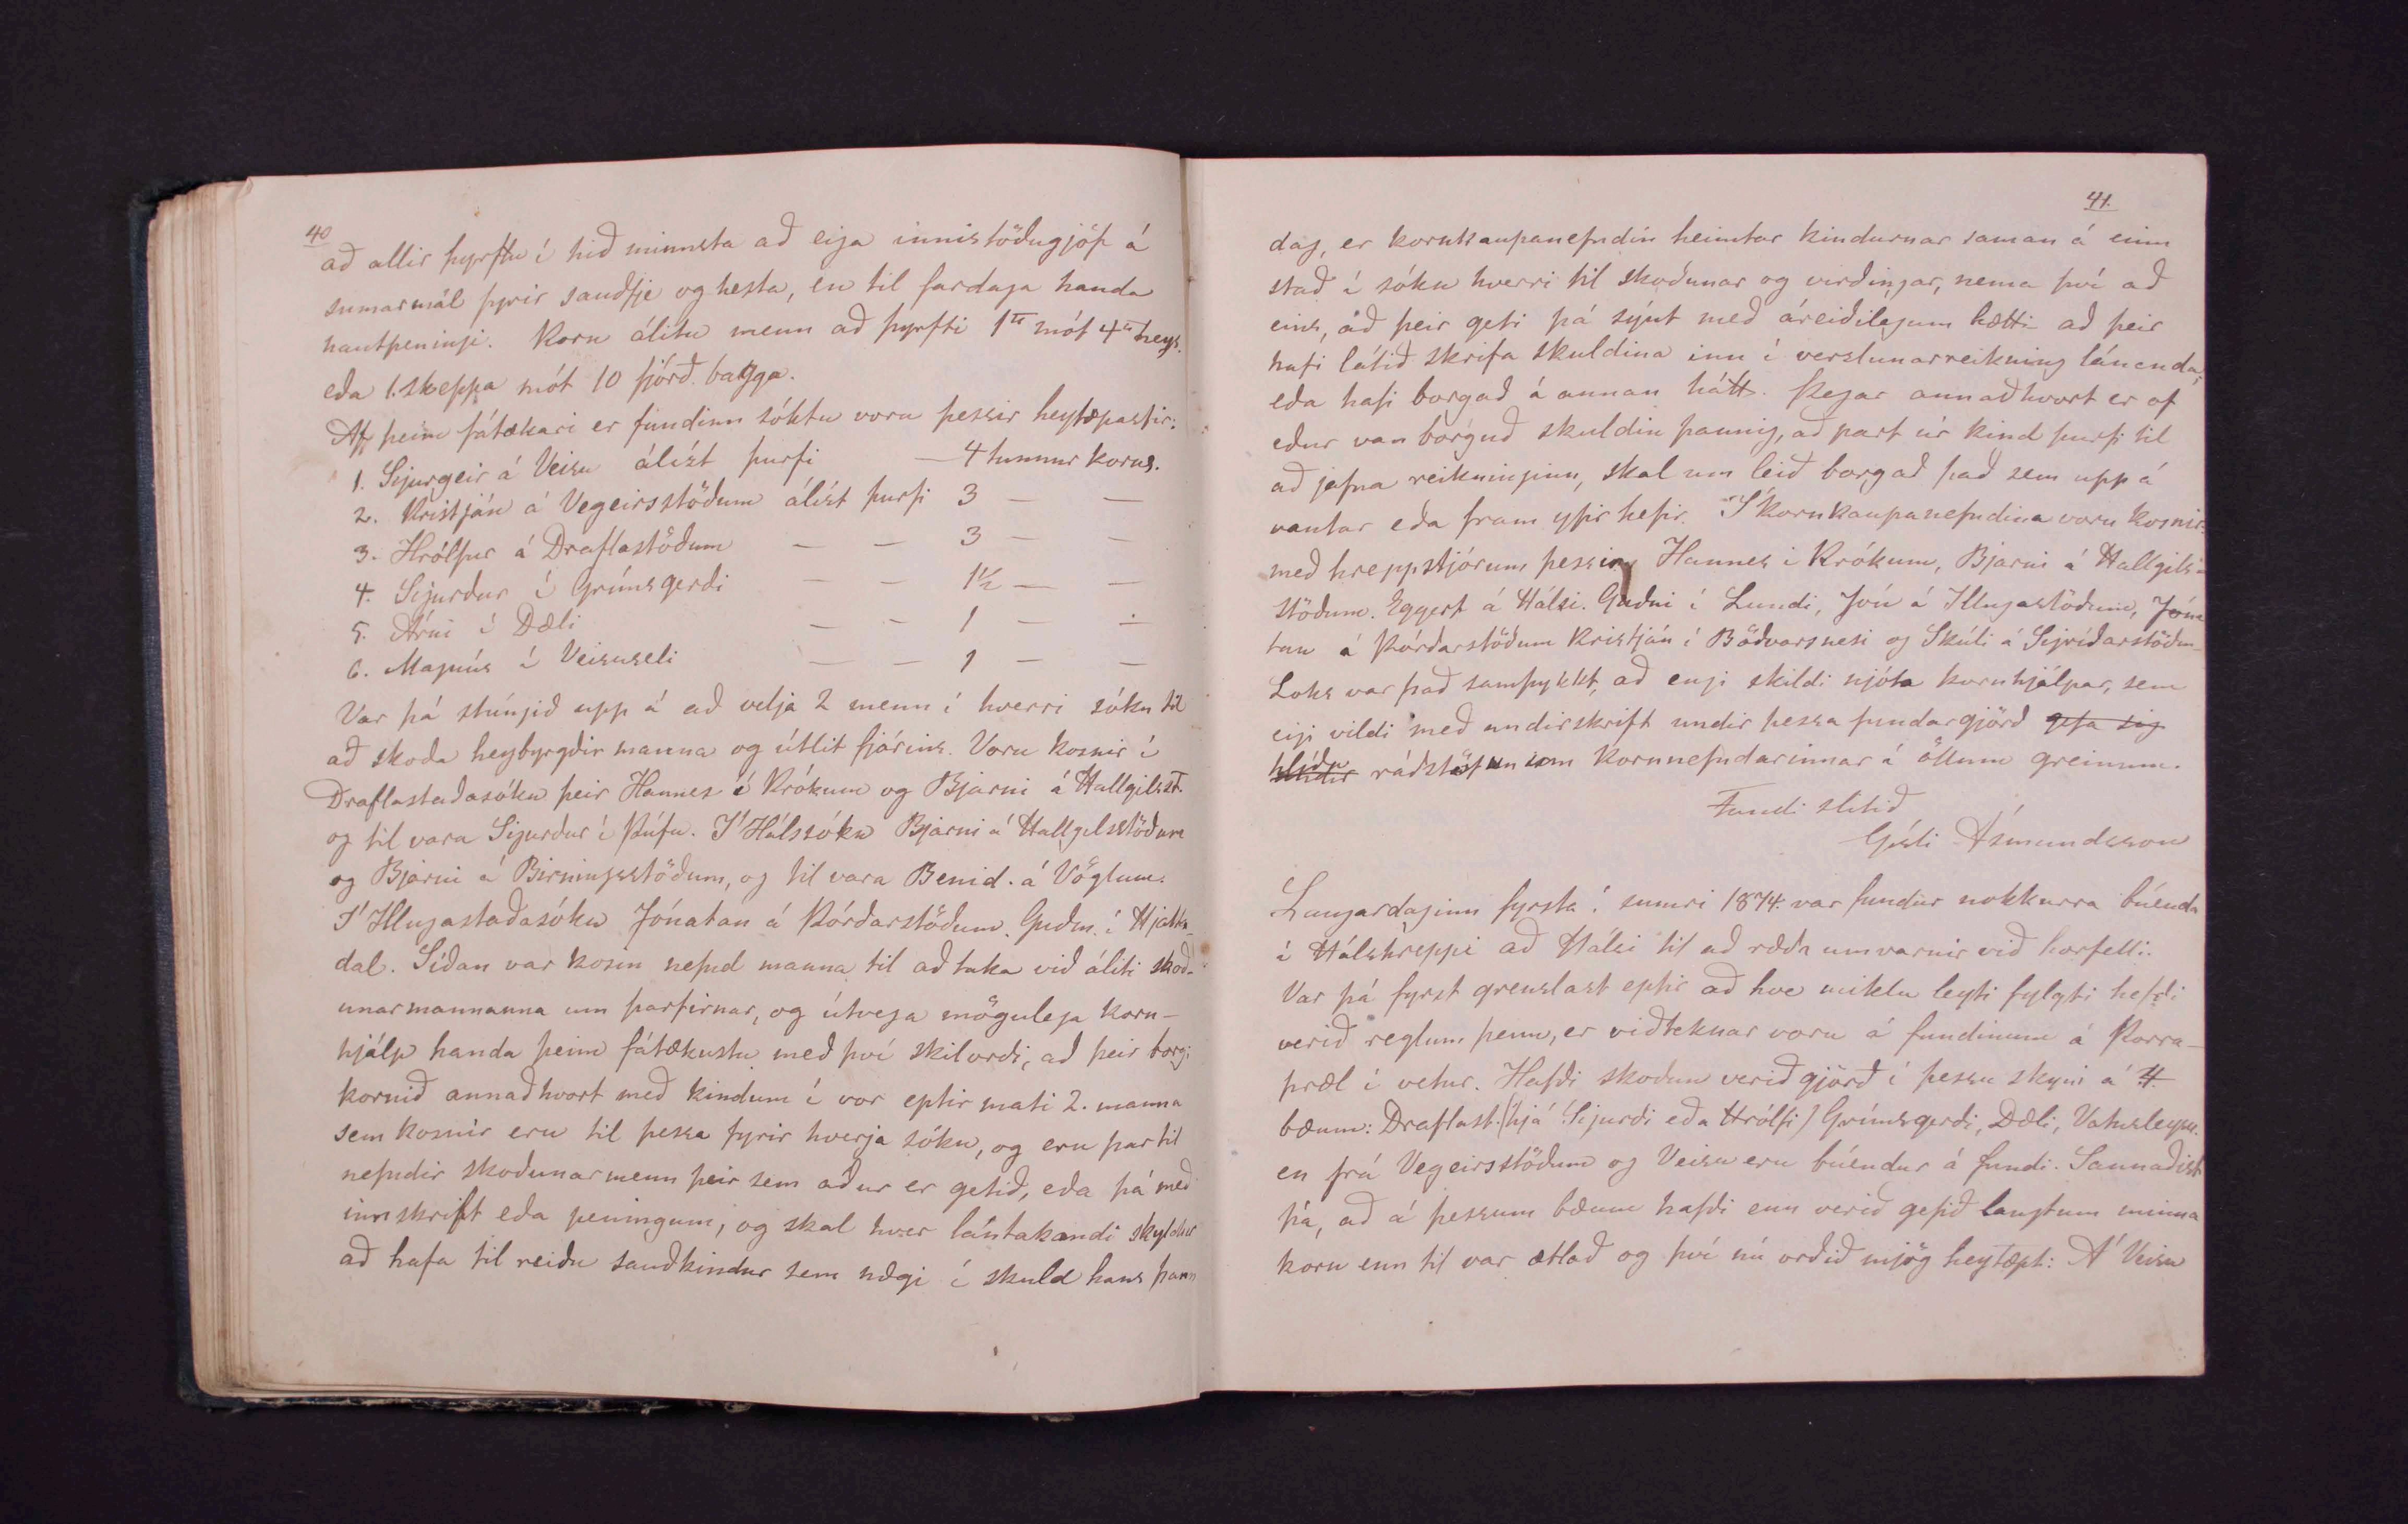 40
að allir þyrftu í hið minnsta að eiga innistöðugjöf á
sumarmál fyrir sauðfje og hesta, en til fardaga handa
nautpeningi. Korn álitu menn að þyrfti 1 mót 4 heys.
eða 1. skeppa mót 10 fjórð. bagga.
Af þeim fátækari er fundinn sóktu voru þessir heytæpastir:
1. Sigurgeir á Veisu álízt þurfi — 4 tunnur korns.
2. Kristján á Vegeirsstöðum álízt þurfi 3 — —
3. Hrólfur á Draflastöðum — — 3 — —
4. Sigurður í Grímsgerði — — 1½ — —
5. Árni í Dæli — — 1 — —
6. Magnús í Veisuseli — — 1 — —
Var þá stúngið upp á að velja 2 menn í hverri sókn til
að skoða heybyrgðir manna og útlit fjárins. Voru kosnir í
Draflastaðasókn þeir Hannes í Krókum og Bjarni á Hallgilsst.
og til vara Sigurður í Þúfu. Í Hálssókn Bjarni á Hallgilsstöðum
og Bjarni á Birningsstöðum, og til vara Benid. á Vöglum.
Í Illugastaðasókn Jónatan á Þórðarstöðum. Guðm. í Hjalta-
dal. Síðan var kosin nefnd manna til að taka við áliti skoð-
unarmannanna um þarfirnar, og útvega mögulega korn-
hjálp handa þeim fátækustu með því skilorði, að þeir borgi
kornið annaðhvort með kindum í vor eptir mati 2. manna
sem kosnir eru til þessa fyrir hverja sókn, og eru þar til
nefndir skoðunarmenn þeir sem aður er getið, eða þá með
innskrift eða peningum, og skal hver lántakandi skyldur
að hafa til reiðu sauðkindur sem nægi í skuld hans þann
41.
dag, er kornkaupanefndin heimtar kindurnar saman á einn
stað í sókn hverri til skoðunar og virðingar, nema því að
eins, að þeir geti þá sýnt með áreiðilegum hætti að þeir
hafi látið skrifa skuldina inn í verslunarreikning lánenda,
eða hafi borgað á annan hátt. Þegar annaðhvort er of
eður van borguð skuldin þannig, að part úr kind þurfi til
að jafna reikninginn, skal um leið borgað það sem upp á
vantar eða fram yfir hefir. Í Kornkaupanefndina voru kosnir:
með hreppstjórum þessir, Hannes í Krókum, Bjarni á Hallgils-
stöðum. Eggert á Hálsi. Guðni í Lundi, Jón á Illugastöðum, Jóna
tan á Þórðarstöðum Kristján í Böðvarsnesi og Skúli á Sigríðarstöðum
Loks var það samþykkt, að engi skildi njóta kornhjálpar, sem
eigi vildi með undirskrift undir þessa fundargjörð gefa sig
hlýða ráðstöfunum Kornnefndarinnar í öllum greinum.
Fundi slitið
Gísli Ásmundsson
Laugardaginn fyrsta í sumri 1874. var fundur nokkurra búenda
í Hálshreppi að Hálsi til að ræða um varnir við horfelli.
Var þá fyrst grenslast eptir að hve miklu leyti fylgti hefði
verið reglum þeim, er viðteknar voru á fundinum á Þorra-
þræl í vetur. Hafði skoðun verið gjörð í þessu skyni á 4
bæum: Draflast. (hjá Sigurði eða Hrólfi) Grímsgerði, Dæli, Vatnsleysu.
en frá Vegeirsstöðum og Veisu eru búendur á fundi. Sannaðist
þá, að á þessum bæum hafði enn verið gefið langtum minna
korn enn til var ætlað og því nú orðið mjög heytæpt: Á Veisu